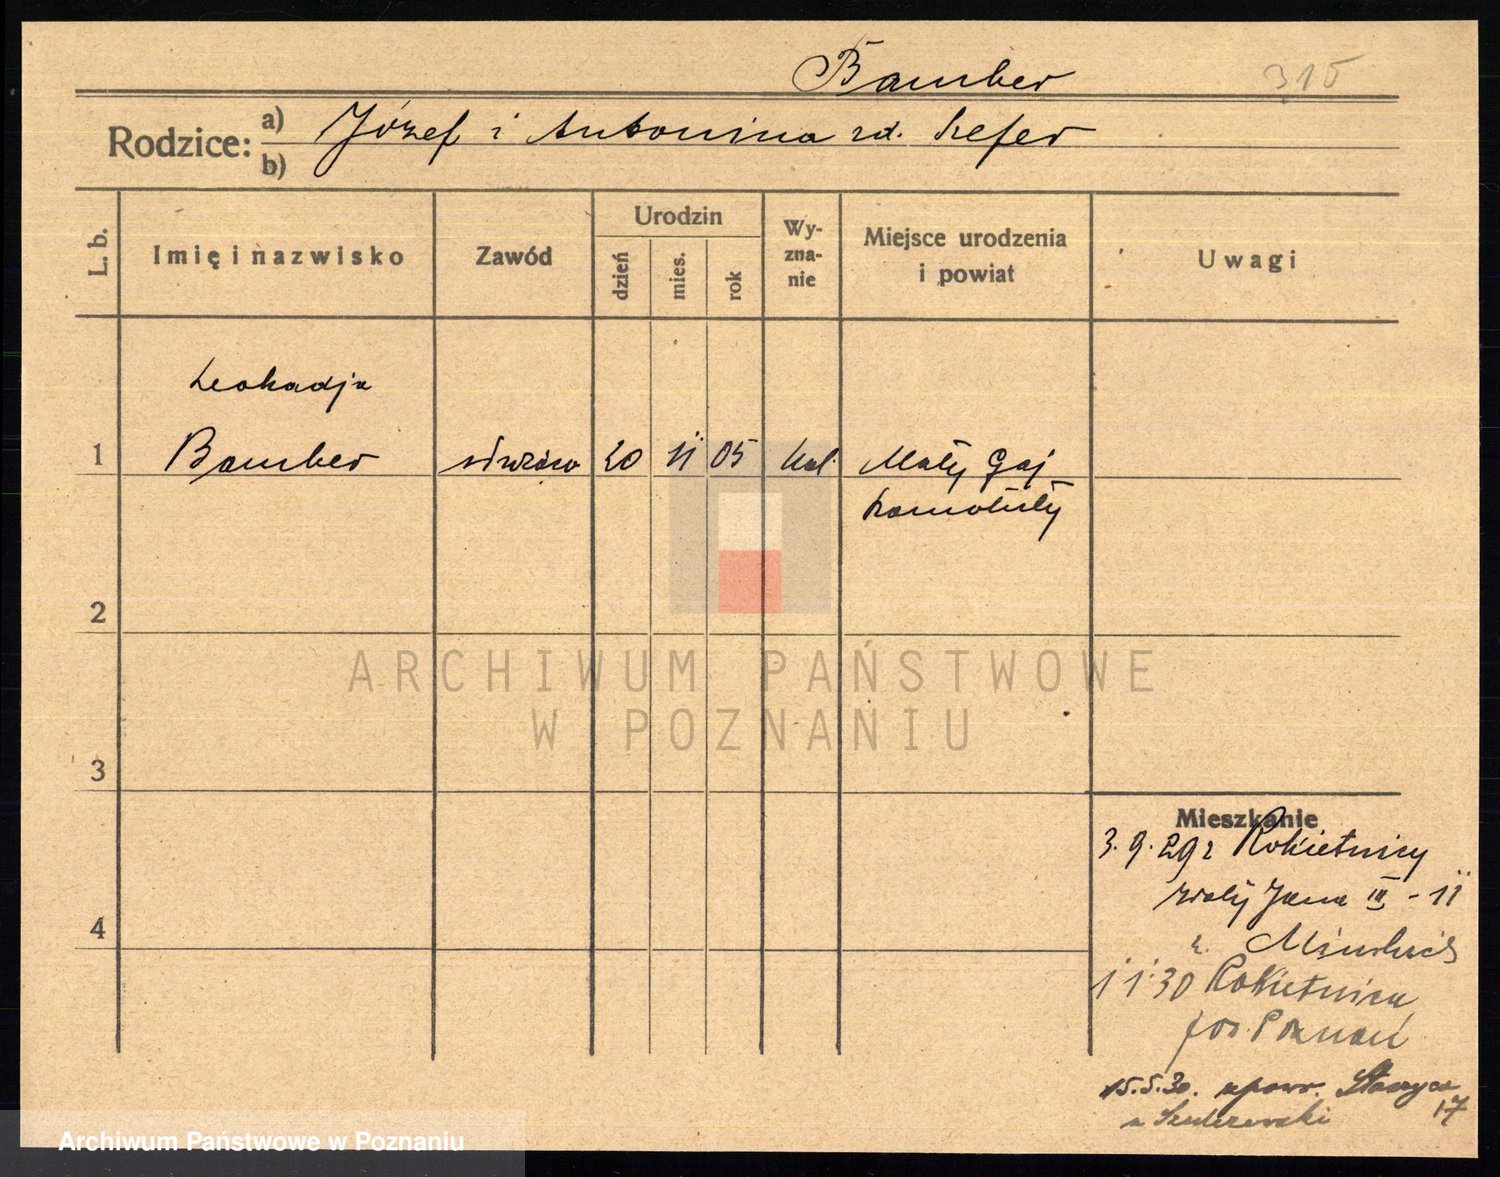 Bamber 315
Rodzice: a) Józef i Antonina rd. Szefer
b)
L. b. Imię i nazwisko Zawód Urodzin dzień mies. rok Wyznanie Miejsce urodzenia i powiat Uwagi
Leokadja
1 Bamber 20 11 05 kat. Mały Gaj
Szamotuły
2
ARCHIWUM PAŃSTWOWE
W POZNANIU
3
Mieszkanie
3.9.29 z Rokietnicy
Jana III - 11
4
1 1 30 Rokietnica
pow. Poznań
15.5.30.
17
Archiwum Państwowe w Poznaniu